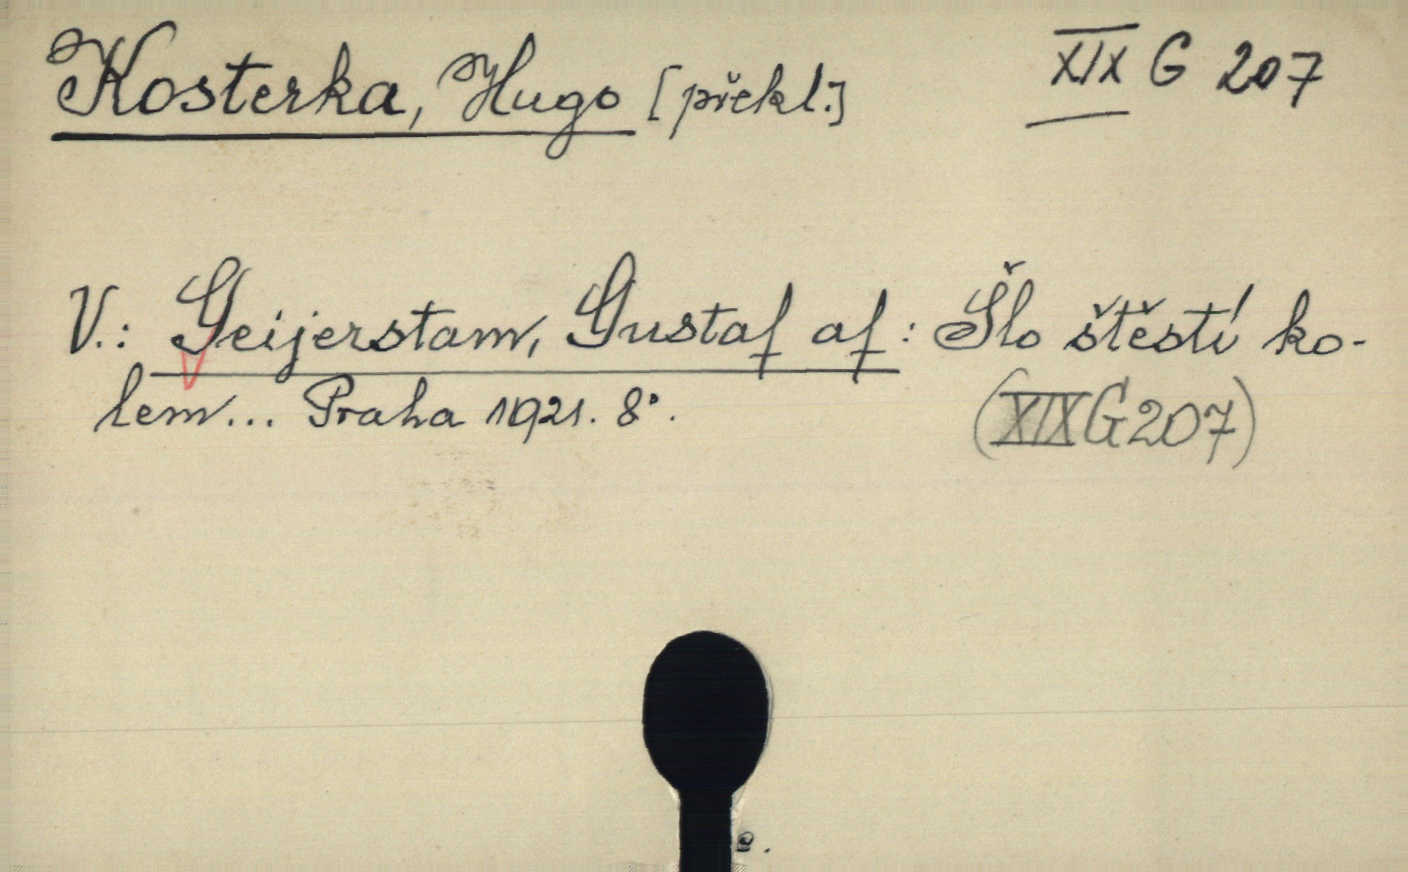 Kosterka, Hugo [překl.] XIX G 207
V.: Geijerstam, Gustaf af: Šlo štěstí ko-
lem... Praha 1921. 8°.
(XIX G 207)